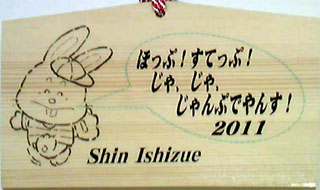 ほっぷ！すてっぷ！
じゃ、じゃ、
じゃんぷでやんす！
2011
Shin Ishizue